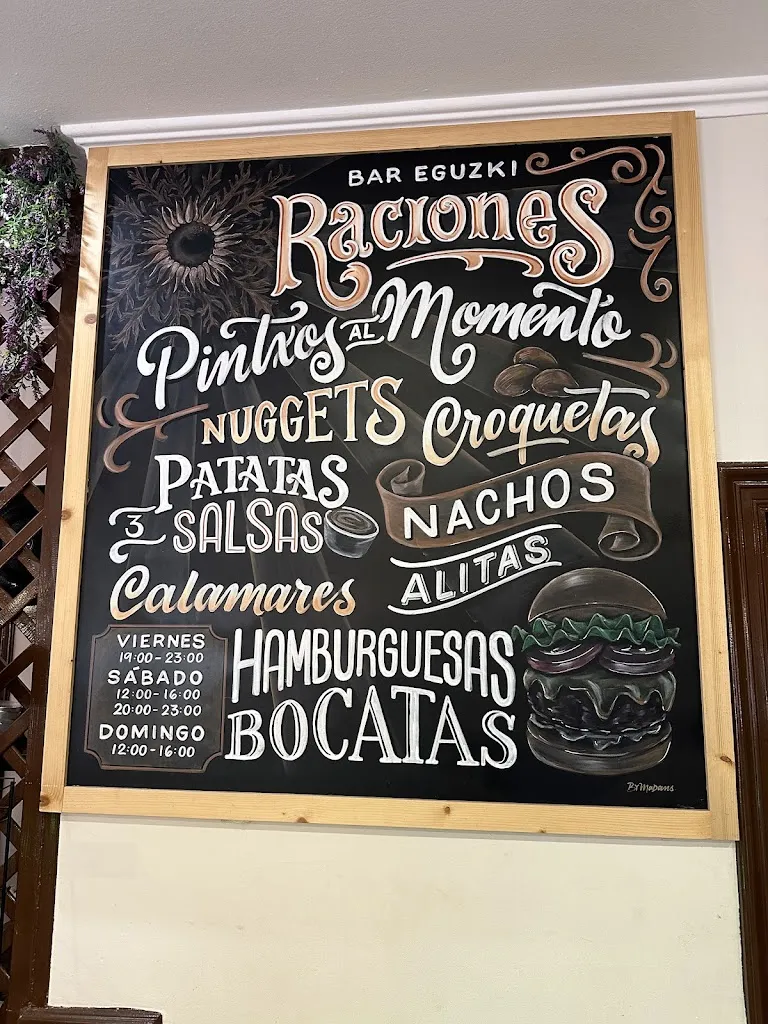 BAR EGUZKI
RACIONES
Pintxos AL Momento
NUGGETS
Croquetas
PATATAS
3 SALSAS
NACHOS
ALITAS
Calamares
VIERNES
19:00-23:00
SÁBADO
12:00-16:00
20:00-23:00
DOMINGO
12:00-16:00
HAMBURGUESAS
BOCATAS